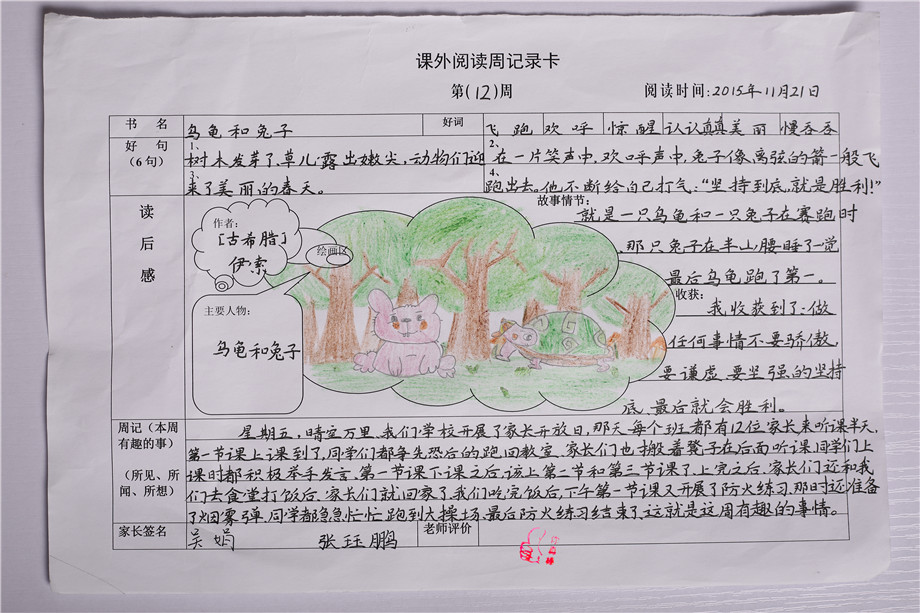 课外阅读周记录卡
第(12)周 阅读时间:2015年11月21日
书 名 乌龟和兔子 好词 飞跑 欢呼 惊醒 认认真真 美丽 慢吞吞
好 句
(6句)
1、树木发芽了,草儿露出嫩尖,动物们迎
3、来了美丽的春天。
2、在一片笑声中,欢呼声中,兔子像离弦的箭一般飞
4、跑出去。他不断给自己打气:“坚持到底,就是胜利!”
读
后
感
作者:
[古希腊]
伊索
绘画区
主要人物:
乌龟和兔子
故事情节:
就是一只乌龟和一只兔子在赛跑时
,那只兔子在半山腰睡了一觉
最后乌龟跑了第一。
收获:
我收获到了:做
任何事情不要骄傲,
要谦虚、要坚强的坚持
底、最后就会胜利。
周记(本周
有趣的事)
(所见、所
闻、所想)
星期五,晴空万里、我们学校开展了家长开放日,那天每个班都有12位家长来听课半天,
第一节课上课到了,同学们都争先恐后的跑回教室、家长们也搬着凳子在后面听课,同学们上
课时都积极举手发言、第一节课下课之后,该上第二节和第三节课了,上完之后、家长们还和我
们去食堂打饭后、家长们就回家了,我们吃完饭后,下午第一节课又开展了防火练习,那时还准备
了烟雾弹、同学都急急忙忙跑到大操场、最后防火练习结束了、这就是这周有趣的事情。
家长签名 吴娟 张珏鹏 老师评价